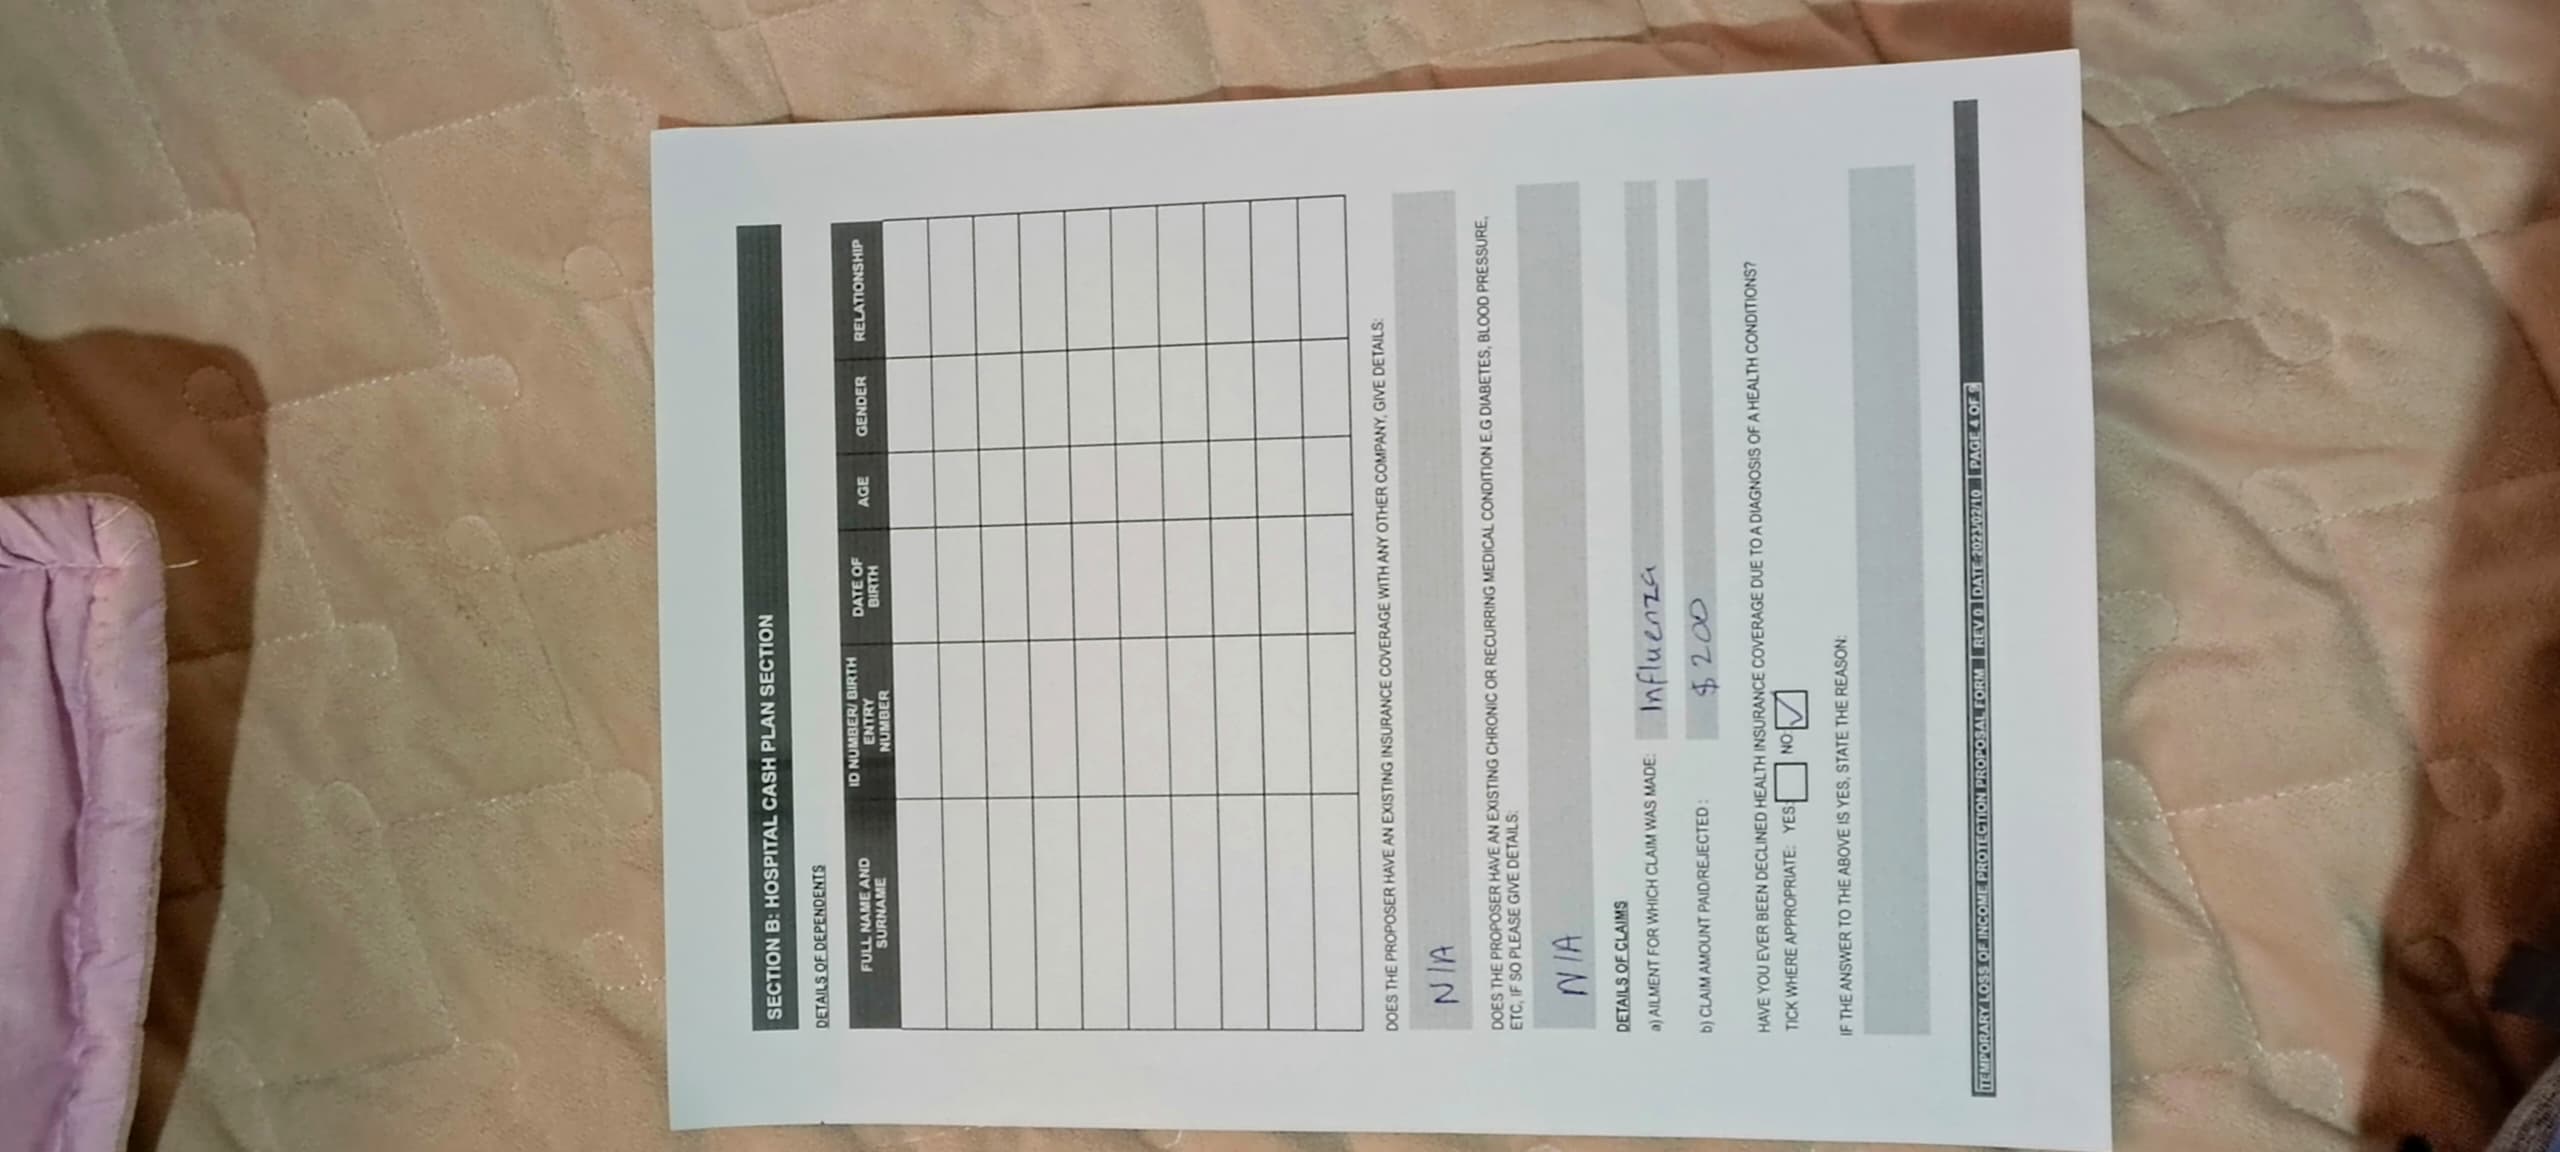 SECTION B: HOSPITAL CASH PLAN SECTION
DETAILS OF DEPENDENTS
FULL NAME AND SURNAME ID NUMBER/ BIRTH ENTRY NUMBER DATE OF BIRTH AGE GENDER RELATIONSHIP
DOES THE PROPOSER HAVE AN EXISTING INSURANCE COVERAGE WITH ANY OTHER COMPANY, GIVE DETAILS:
N/A
DOES THE PROPOSER HAVE AN EXISTING CHRONIC OR RECURRING MEDICAL CONDITION E.G DIABETES, BLOOD PRESSURE,
ETC, IF SO PLEASE GIVE DETAILS:
N/A
DETAILS OF CLAIMS
a) AILMENT FOR WHICH CLAIM WAS MADE: Influenza
b) CLAIM AMOUNT PAID/REJECTED : $200
HAVE YOU EVER BEEN DECLINED HEALTH INSURANCE COVERAGE DUE TO A DIAGNOSIS OF A HEALTH CONDITIONS?
TICK WHERE APPROPRIATE: YES: NO: ✓
IF THE ANSWER TO THE ABOVE IS YES, STATE THE REASON:
TEMPORARY LOSS OF INCOME PROTECTION PROPOSAL FORM | REV 0 | DATE:2023/02/10 | PAGE 4 OF